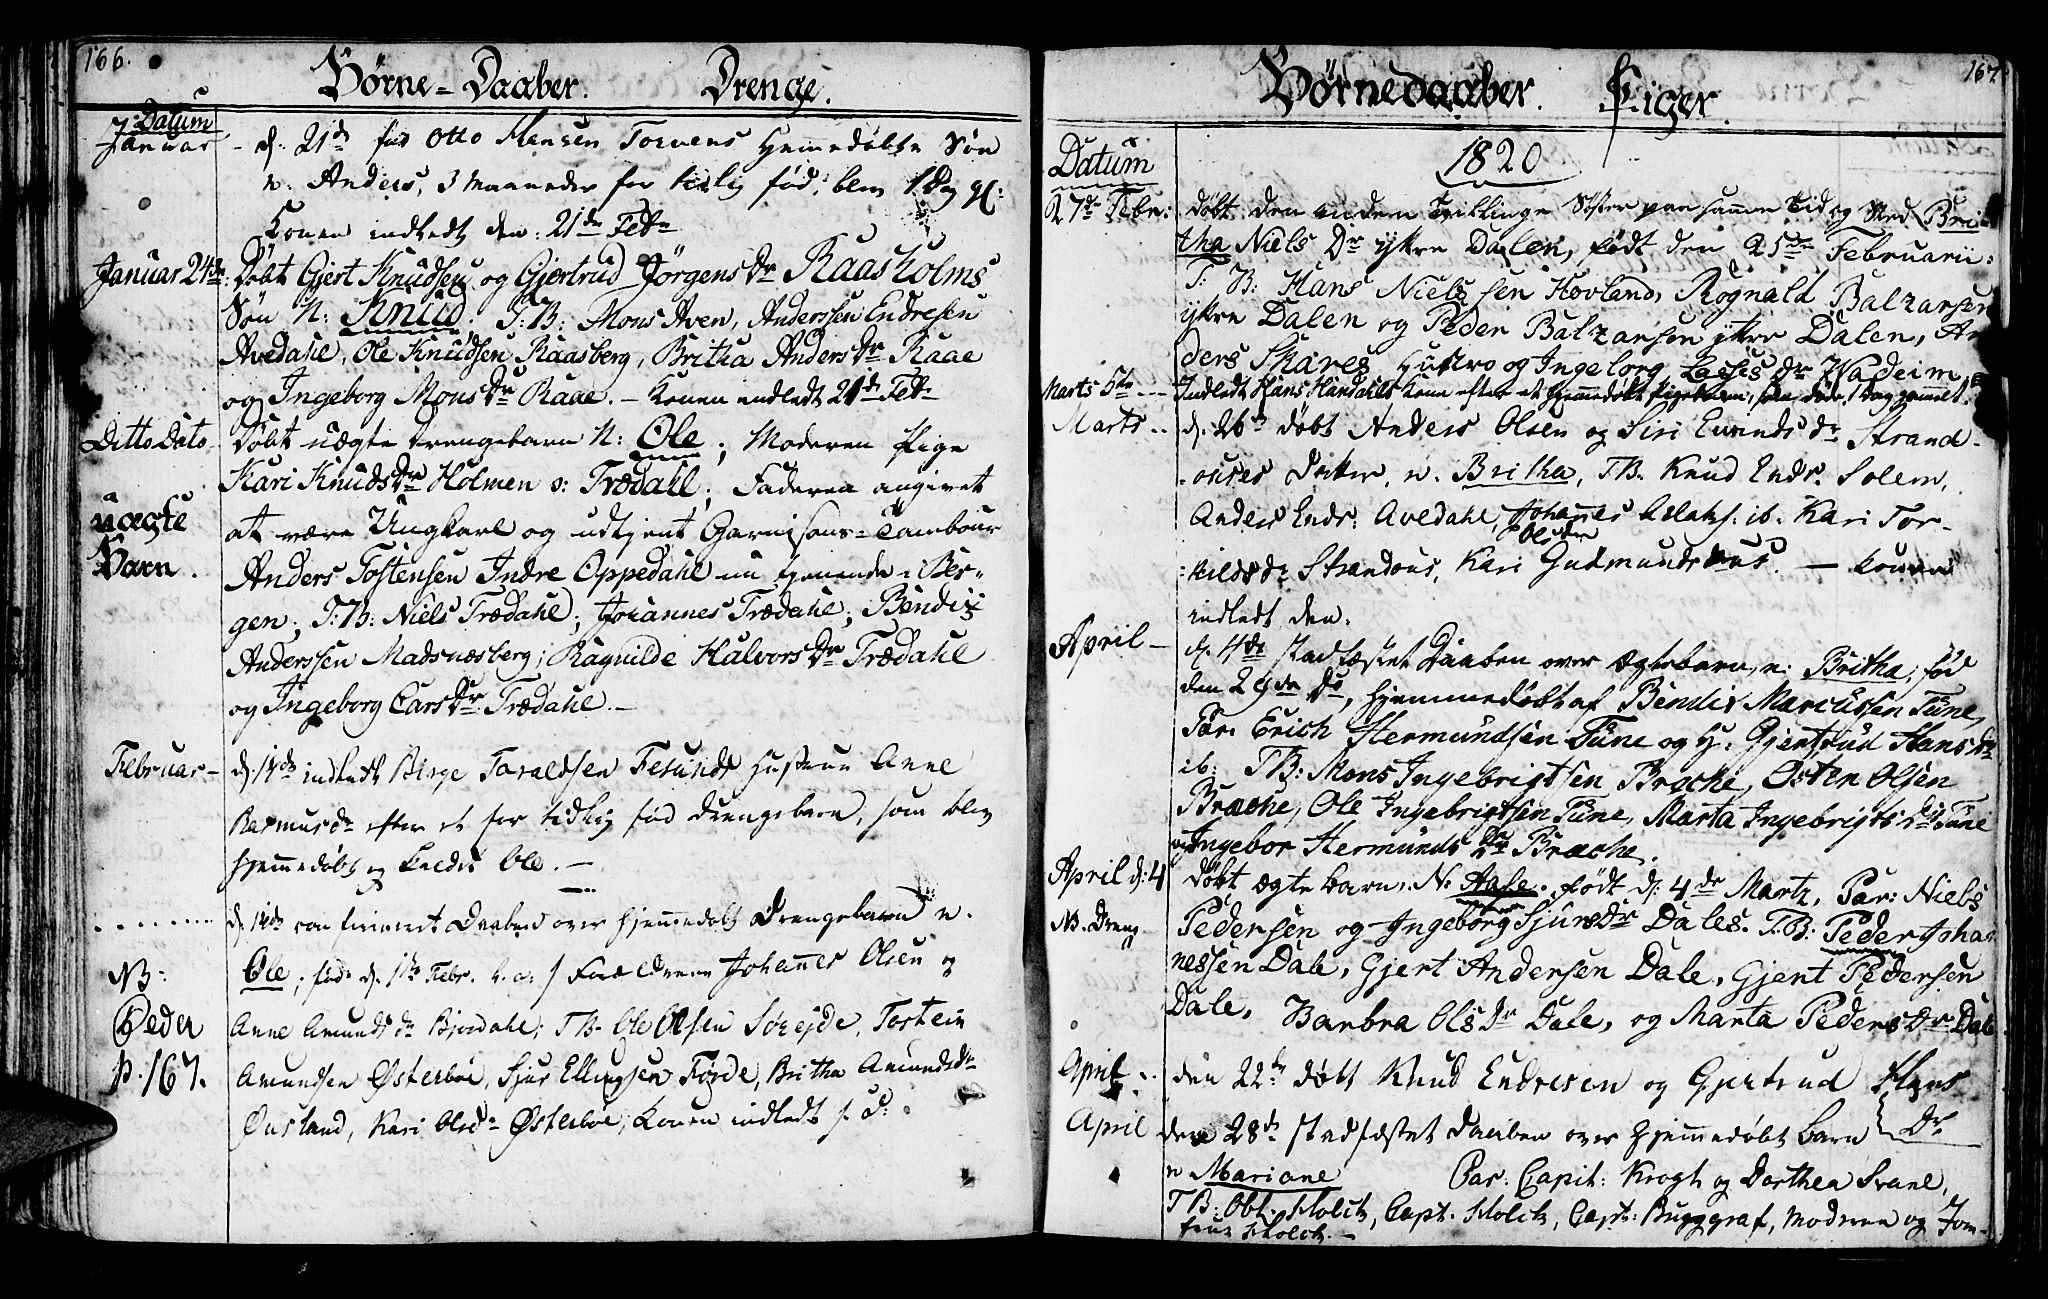 166.
Børne-Daaber. Drenge.
Datum
Januar - d: 21de fik Otto Hansen Torvens Hjemmedøbte Søn
n: Anders, 3 Maaneder for tidlig fød, blev 1 Dag gl:
Konen indledt den: 21de Feb
Januar 24de: Døbt Gjert Knudsen og Gjertrud Jörgens Dr Raasholms
Søn N: Knud. T:B: Mons Aven, Anderssen Endresen
Avedahl, Ole Knudsen Raasberg, Britha Anders Dr Raae
og Ingeborg Mons Dr Raae. - Konen indledt 21de Feb
Ditto Dato Døbt uægte Drengebarn N: Ole; Moderen Pige
Kari Knuds Dr Holmen v: Trædahl; Faderen angivet
uægte
Barn.
at være Ungkarl og udtjent Garnisons-Tambour
Anders Tostensen Indre Oppedahl nu tjenende i Ber-
gen; T:B: Niels Trædahl; Johannes Trædahl; Bendix
Anderssen Madsnæsberg; Ragnilde Halvors Dr Trædahl
og Ingeborg Lars Dr Trædahl. -
Februar - d: 14de indledt Birge Taraldsen Hustrue Anne
Rasmusdr efter et for tidlig fød Drengebarn, som blev
hjemmedøbt og kaldet Ole. -
d: 14de confirmeret Daaben over hjemmedøbt Drengebarn n.
NB:
Peder
p. 167.
Ole; fød d. Febr. Forældrene Johannes Olsen og
Anne Amunds dr Bjordahl; TB. Ole Olsen Sørejde, Tostein
Amundsen Østerbøe, Sjur Ellingsen Førde, Britha Amundsdr
Ousland, Kari Olsdr Østerbøe; Konen indledt s. D:
167.
Børnedaaber. Piger.
Datum
1820
27de Febr: døbt den anden Tvillinge Søster paa samme Tid og Sted Bri-
tha Niels Dr ytre Dalen, født den 25de Februarii:
T: B: Hans Nielssen Hovland, Rognald Balzarsen
ytre Dalen og Peder Balzarsen ytre Dalen, An
ders Skares Hustro og Ingeborg Lasses dr Wadeim
Marts 5te - Indledt Hans Handahls Kone efter et hjemmedøbt Pigebarn, som døde, 1 Dag gammel.
Marts .. d: 26de døbt Anders Olsen og Siri Eivinds dr Strand-
ouses Datter, n. Britha, TB. Knud Endr. Solem,
Anders Endr: Avedahl, Johannes Aslaks. ib. Kari Tor-
Olsdr
kilds dr Strandous, Kari Gudmunds ous. - Konen
indledt den.
April - d. 4de stadfæstet Daaben over Ægtebarn, n: Britha; fød
den 29de Do, hjemmedøbt af Bendix Marcussen Tune,
Par. Erich Hermundsen Tune og H: Gjertrud Hans dr
ib: TB: Mons Ingebrigtsen Bræche, Østen Olsen
Bræche, Ole Ingebrigtsen Tune, Marta Ingebrigts Dr Tune
og Ingebor Hermunds Dr Bræche.
April d: 4 Døbt Ægte Barn: N. Aase. Født d: 4de Martz, Par: Niels
NB. Dreng Pedersen og Ingeborg Sjurs Dr Dales. T.B: Peder Johan
nessen Dale, Gjert Andersen Dale, Gjert Pedersen
Dale, Barbra Ols Dr Dale, og Marta Peders Dr Dale
April .. den 22de døbt Knud Endresen og Gjertrud Hans
Dr
April den 28de stadfæstet Daaben over hjemmedøbt Barn
n Mariane Par: Capit: Krogh og Dorthea Svane,
TB: Obt. Holck, Capt. Holck, Capt: Buggraf, Moderen og Jom-
frue Holck. -